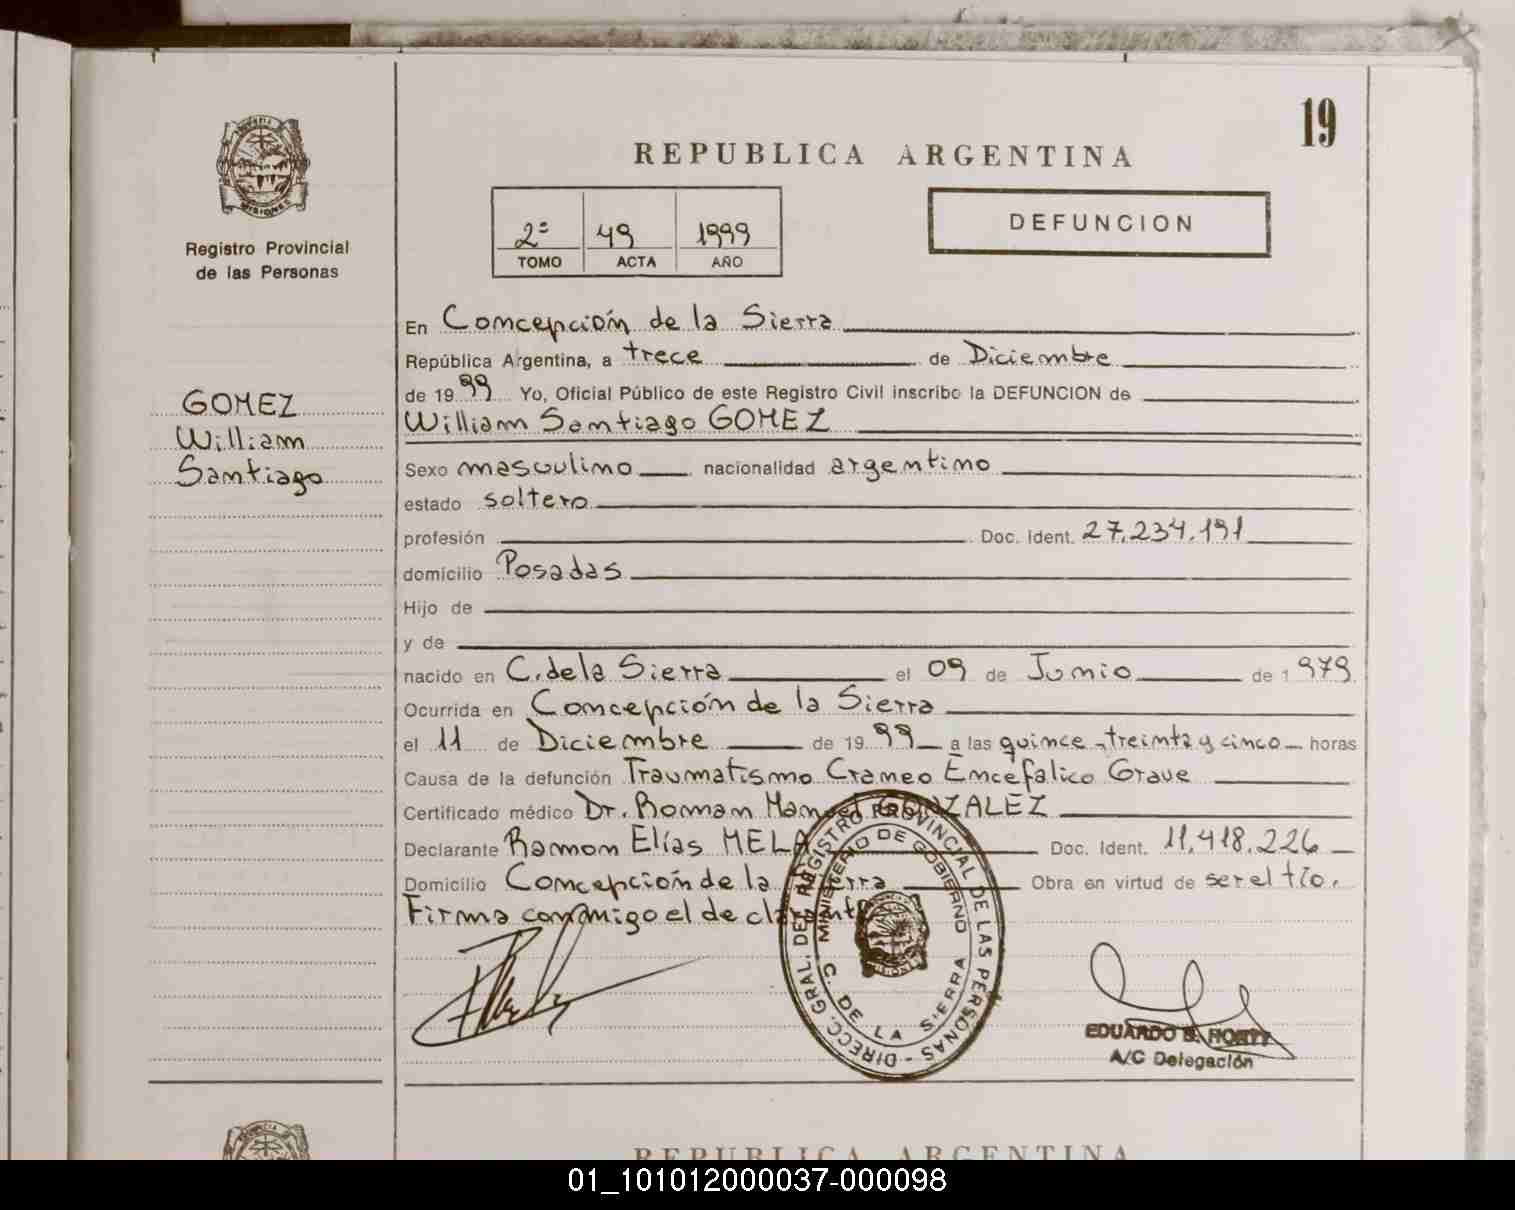 19
REPUBLICA ARGENTINA
DEFUNCION
2º 49 1999
TOMO ACTA AÑO
Registro Provincial
de las Personas
GOMEZ
William
Santiago
En Concepción de la Sierra
República Argentina, a trece de Diciembre
de 1999 Yo, Oficial Público de este Registro Civil inscribo la DEFUNCION de
William Santiago GOMEZ
Sexo masculino nacionalidad argentino
estado soltero
profesión Doc. Ident. 27.234.191
domicilio Posadas
Hijo de
y de
nacido en C. de la Sierra el 09 de Junio de 1979
Ocurrida en Concepción de la Sierra
el 11 de Diciembre de 1999 a las quince, treinta y cinco horas
Causa de la defunción Traumatismo Craneo Encefalico Grave
Certificado médico Dr. Roman Manuel GONZALEZ
Declarante Ramon Elías MELA Doc. Ident. 11.418.226
Domicilio Concepción de la Sierra Obra en virtud de ser el tío.
Firma conmigo el declarante
DIRECC. GRAL. DEL REGISTRO PROVINCIAL DE LAS PERSONAS
MINISTERIO DE GOBIERNO
C. DE LA SIERRA
EDUARDO
A/C Delegación
REPUBLICA ARGENTINA
01_101012000037-000098